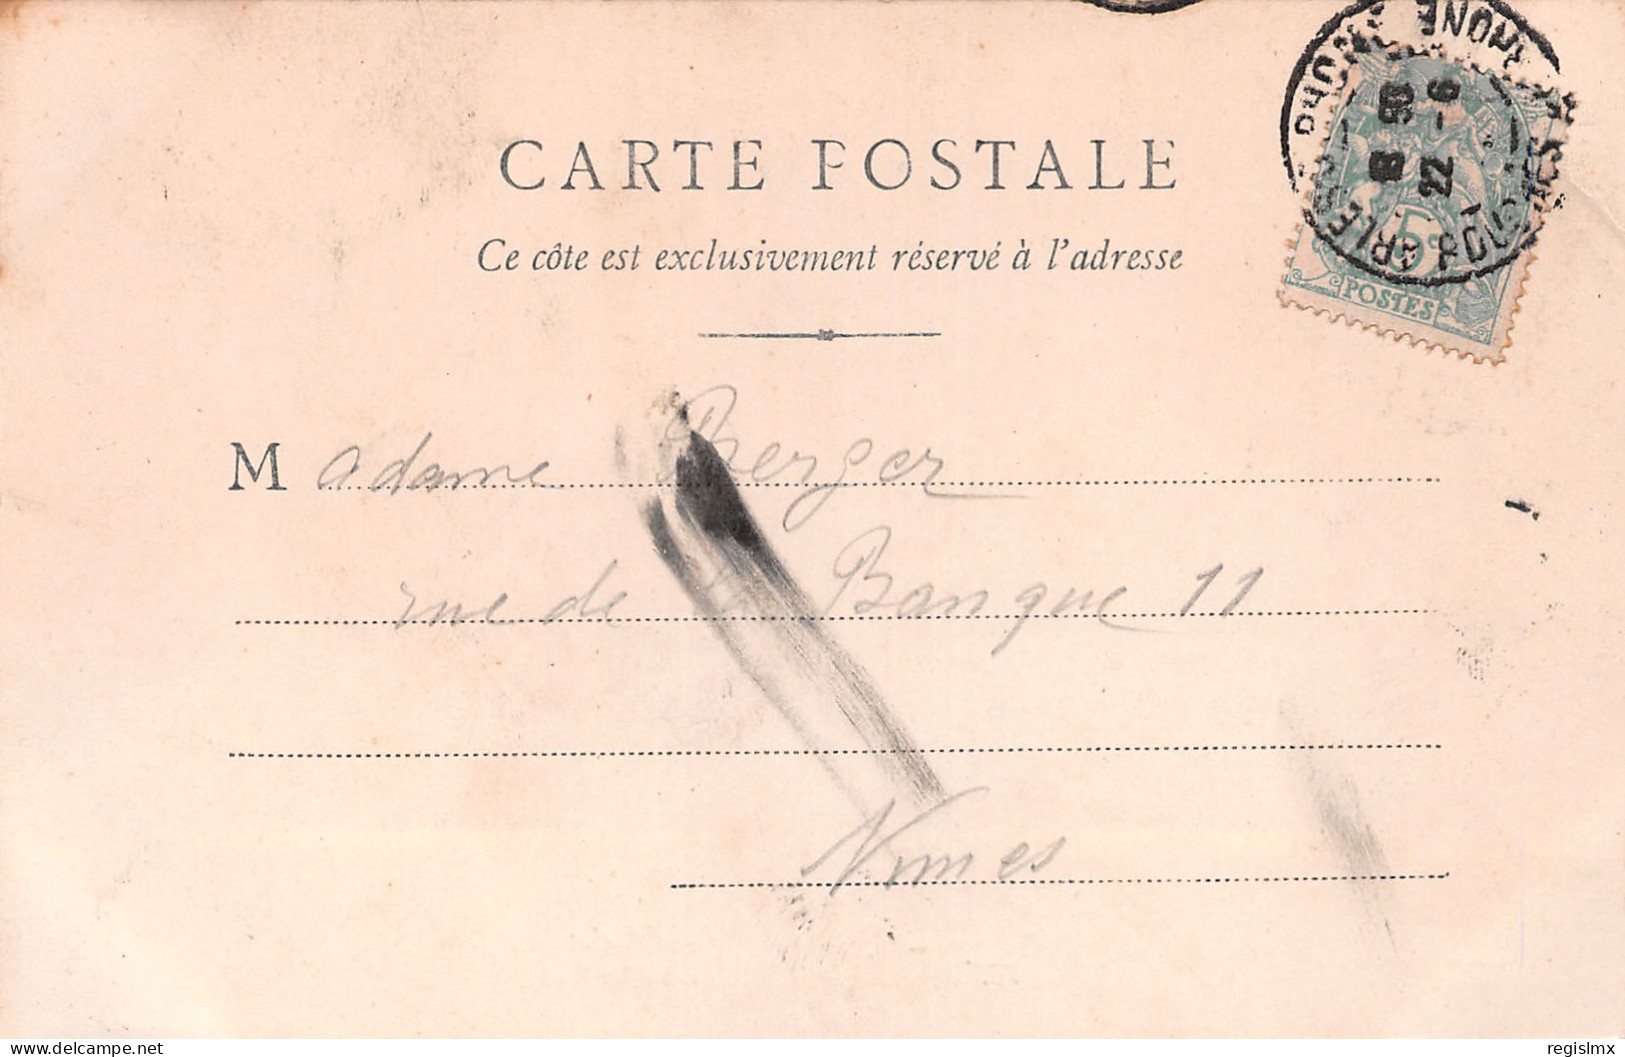 CARTE POSTALE
Ce côte est exclusivement réservé à l'adresse
5c
POSTES
ARLES
BOUCHES
RHONE
18 50
22 - 6
Madame Berger
rue de la Banque 11
Nimes
delcampe.net
regislmx